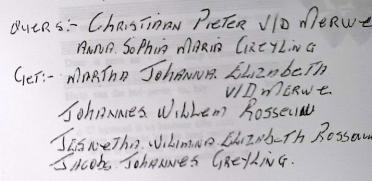 OUERS:- CHRISTIAAN PIETER V/D MERWE
ANNA SOPHIA MARIA GREYLING
GET:- MARTHA JOHANNA ELIZABETH
V/D MERWE.
JOHANNES WILLEM ROSSEUW
WILIMINA ELIZABETH ROSSEUW
JACOBS JOHANNES GREYLING.